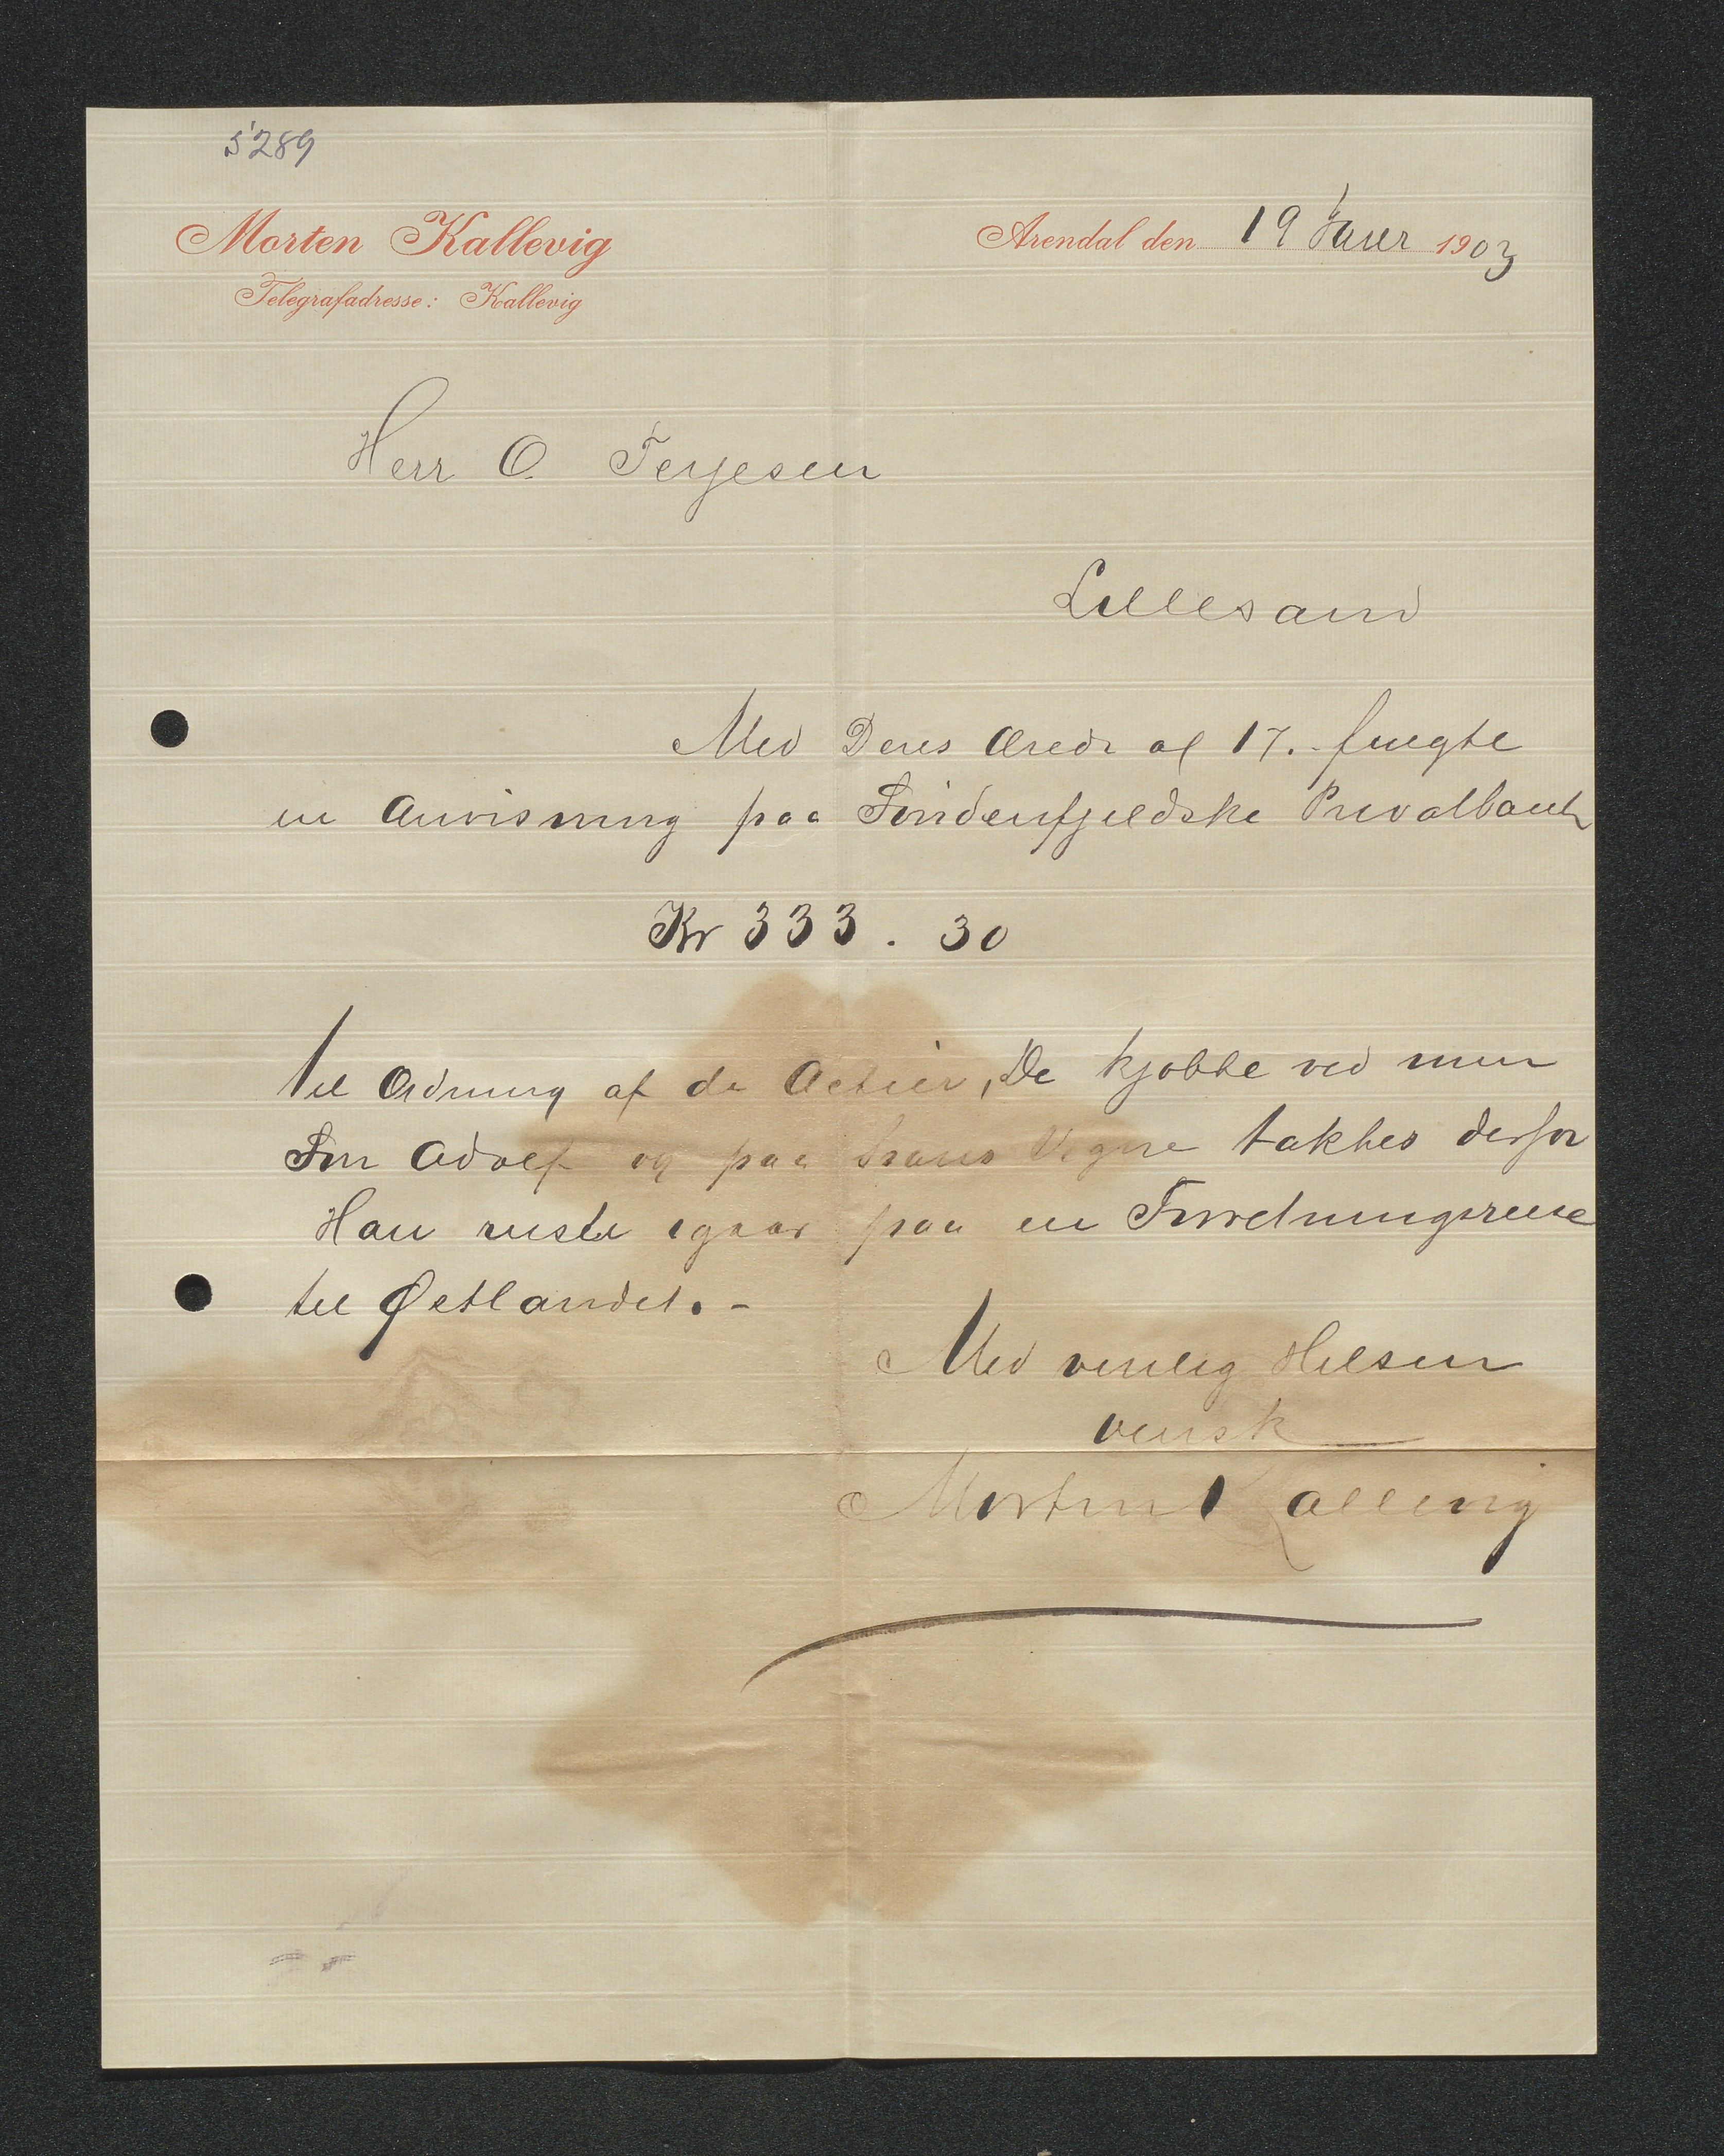 5289
Morten Kallevig
Telegrafadresse: Kallevig
Arendal den 19 Januar 1903
Herr O. Terjesen
Lillesand
Med Deres Ærede af 17. fulgte
en Anvisning paa Söndenfjeldske Privatbank
Kr 333. 30
til Ordning af de Actier, De kjøbte ved min
Søn Adolf og paa hans Vegne takkes derfor
Han reiste igaar paa en Forretningsreise
til Østlandet. -
Med venlig Hilsen
vensk
Morten Kallevig